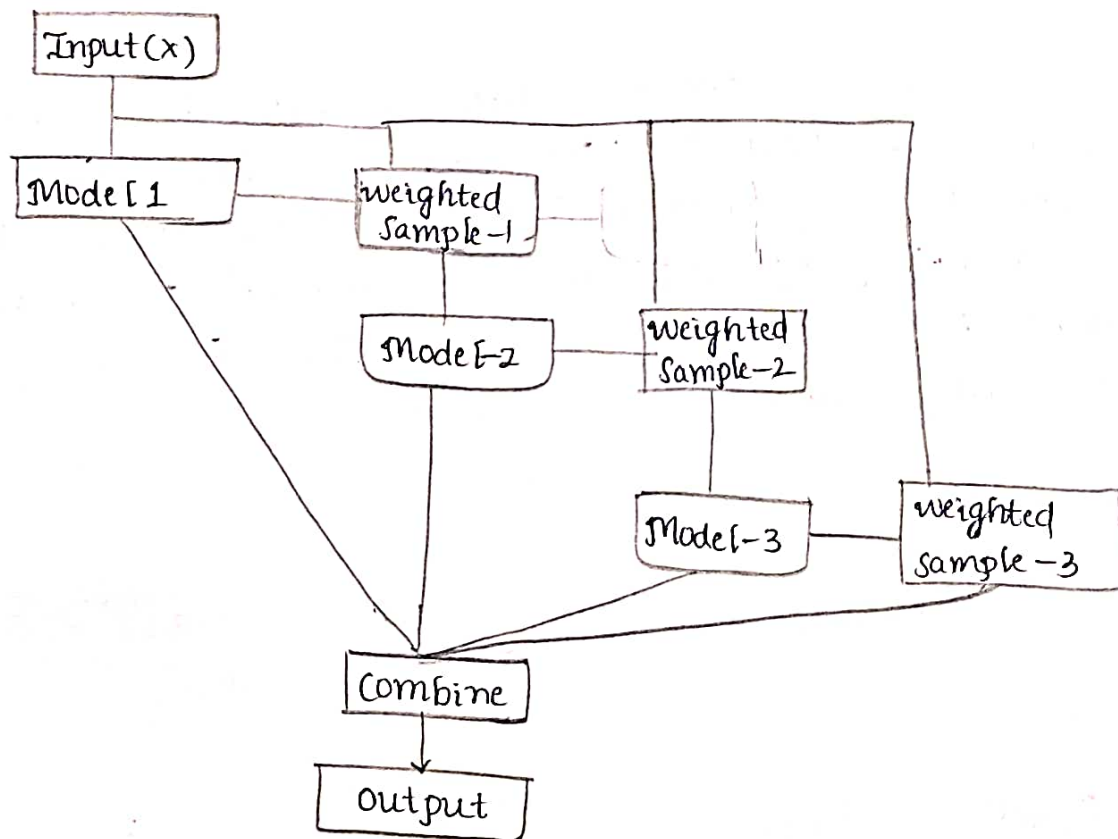 Input(x)
Model 1
weighted
sample-1
Model-2
weighted
sample-2
Model-3
weighted
sample-3
combine
output